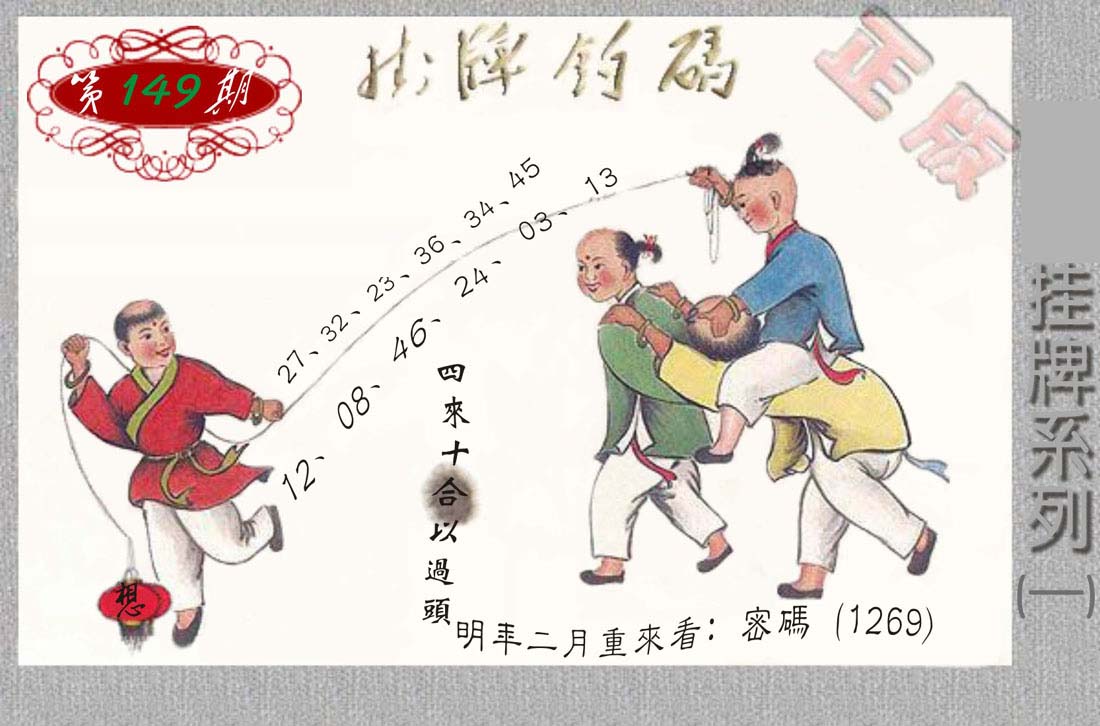 第149期
掛牌釣碼
正版
27、32、23、36、34、45
12、08、46、24、03、13
四來十合以過頭
想
明年二月重來看：密碼（1269）
挂牌系列(一)